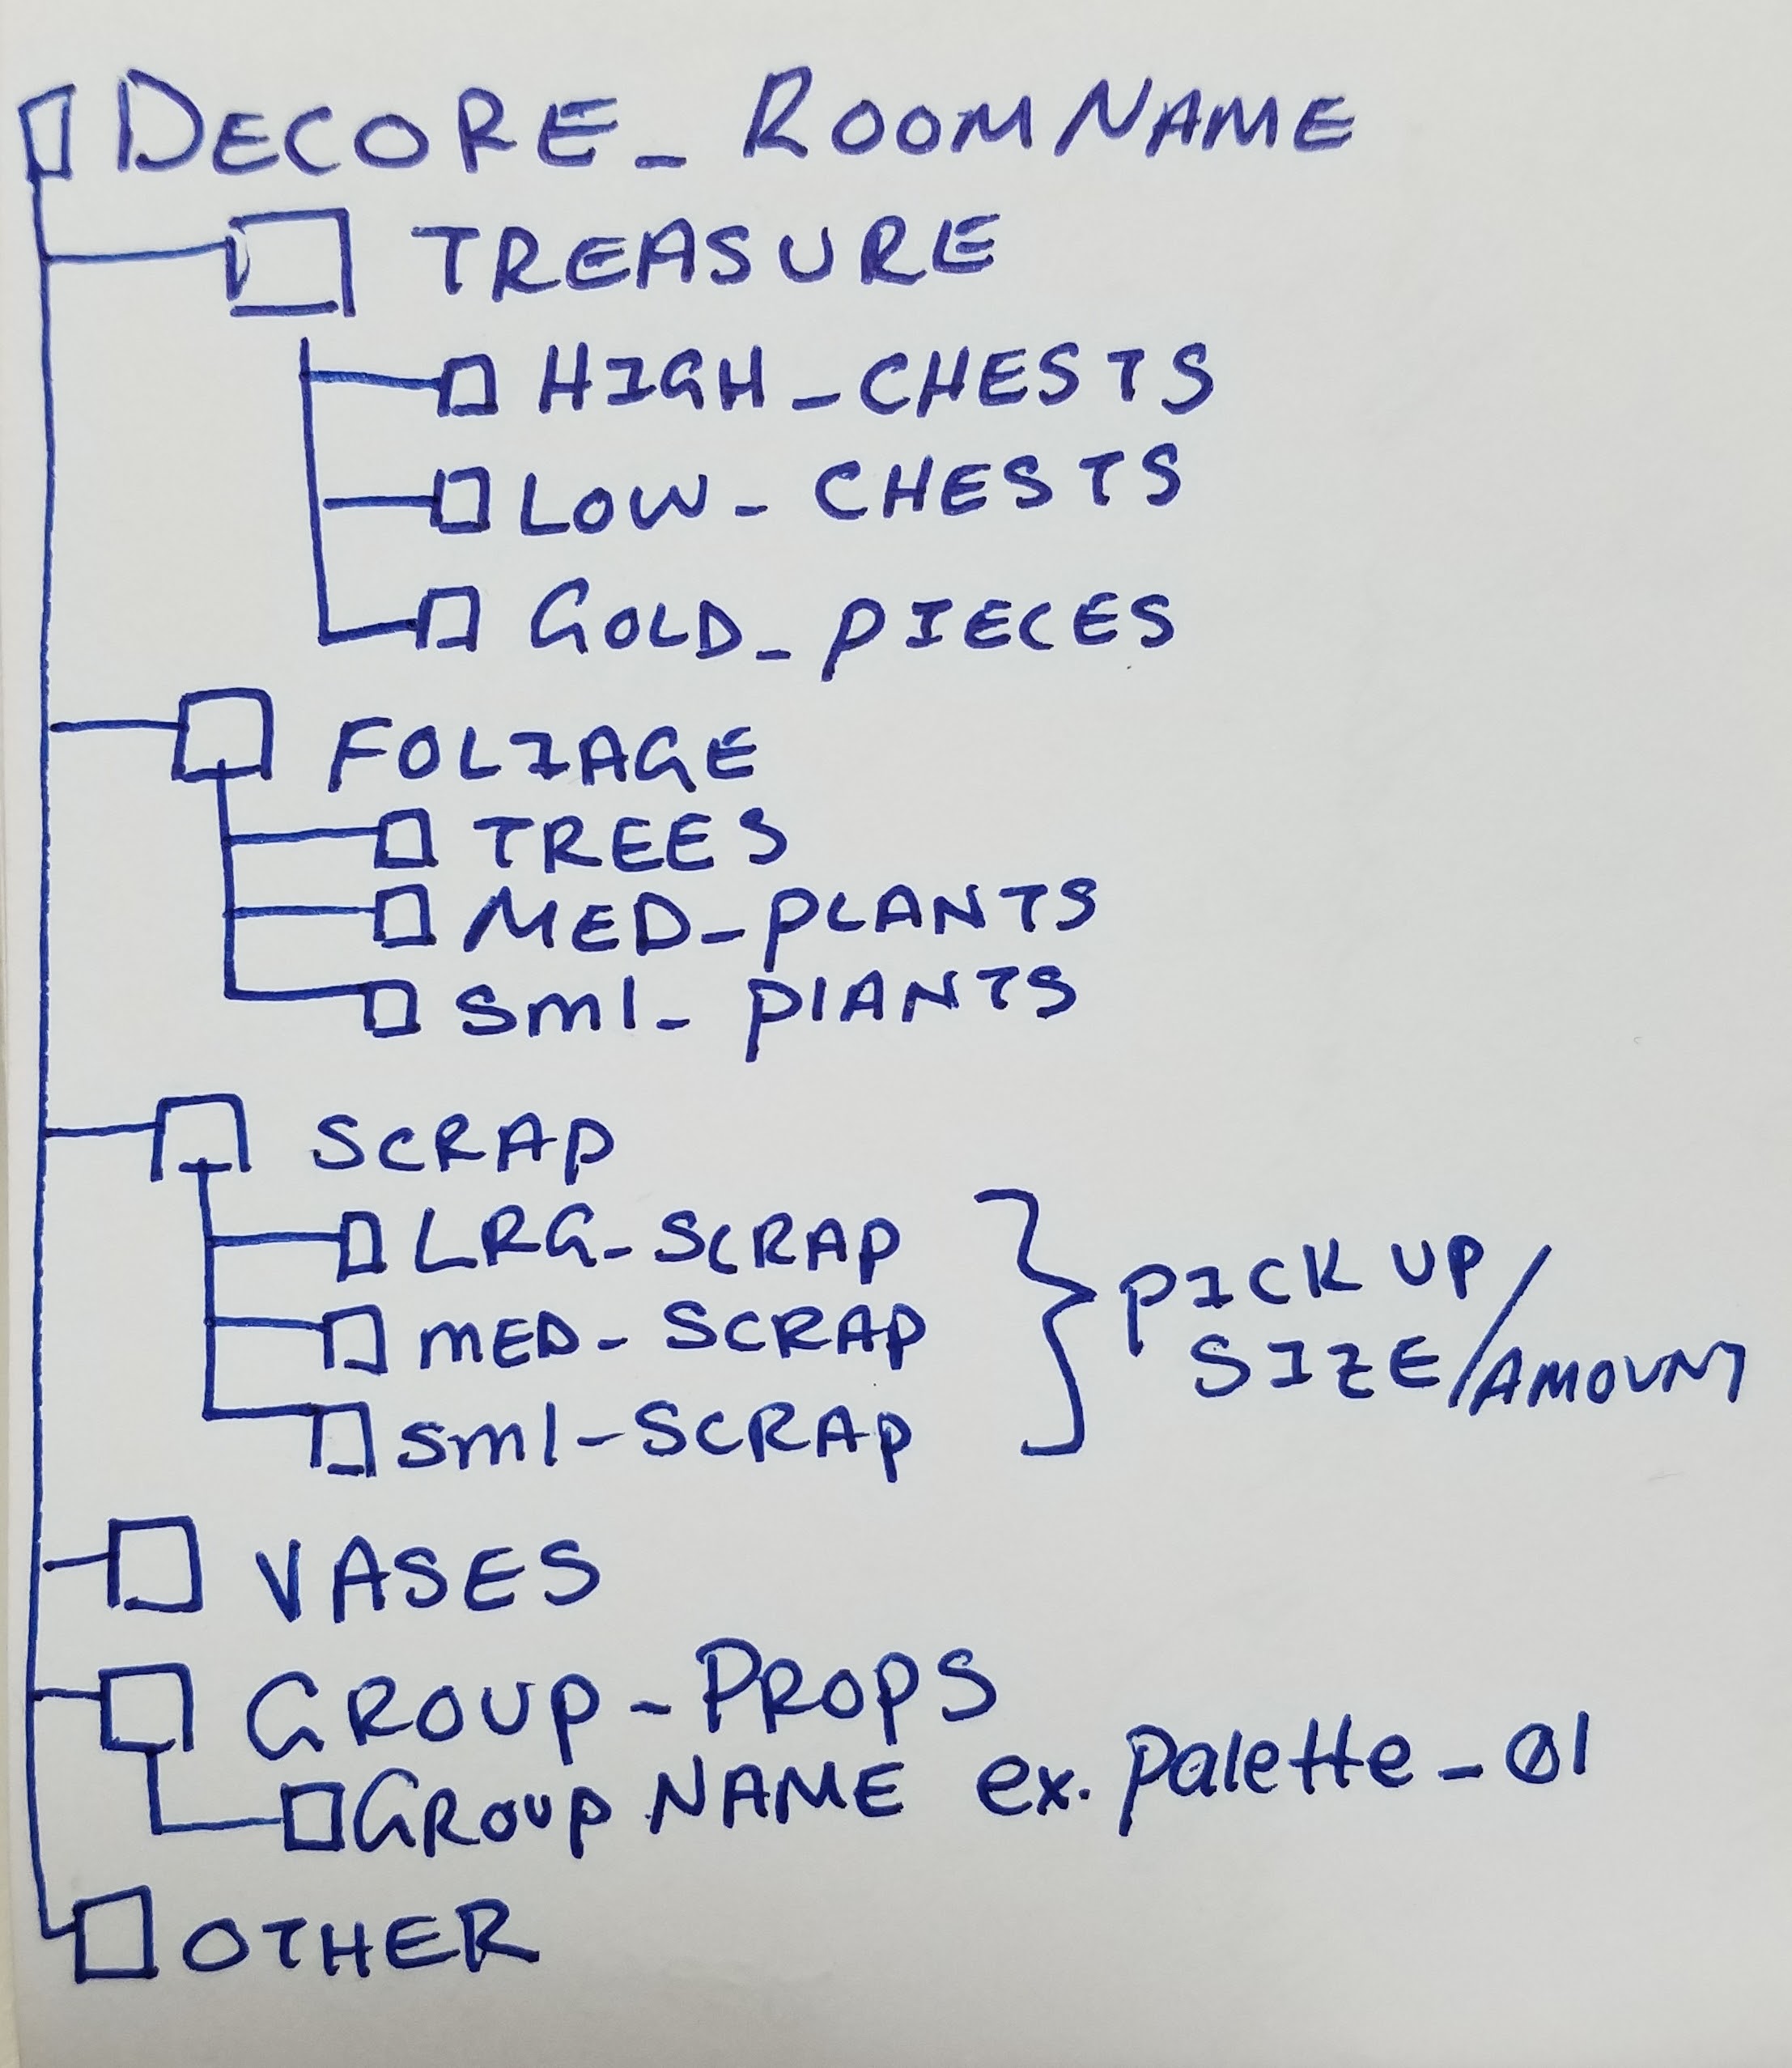 DECORE_ROOMNAME
TREASURE
HIGH_CHESTS
LOW_CHESTS
GOLD_PIECES
FOLIAGE
TREES
MED_PLANTS
sml_PlANTS
SCRAP
LRG_SCRAP
MED_SCRAP
sml_SCRAP
PICK UP
SIZE/AMOUNT
VASES
GROUP_PROPS
GROUP NAME ex. palette_01
OTHER